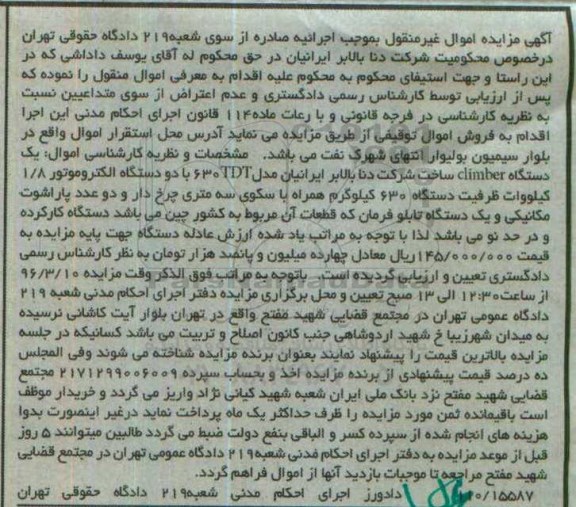 آگهی مزایده اموال غیرمنقول بموجب اجرائیه صادره از سوی شعبه۲۱۹ دادگاه حقوقی تهران
درخصوص محکومیت شرکت دنا بالابر ایرانیان در حق محکوم له آقای یوسف داداشی که در
این راستا و جهت استیفای محکوم به محکوم علیه اقدام به معرفی اموال منقول را نموده که
پس از ارزیابی توسط کارشناس رسمی دادگستری و عدم اعتراض از سوی متداعیین نسبت
به نظریه کارشناسی در فرجه قانونی و با رعات ماده۱۱۴ قانون اجرای احکام مدنی این اجرا
اقدام به فروش اموال توقیفی از طریق مزایده می نماید آدرس محل استقرار اموال واقع در
بلوار سیمیون بولیوار انتهای شهرک نفت می باشد. مشخصات و نظریه کارشناسی اموال: یک
دستگاه climber ساخت شرکت دنا بالابر ایرانیان مدل ۶۳۰TDT با دو دستگاه الکتروموتور ۱/۸
کیلووات ظرفیت دستگاه ۶۳۰ کیلوگرم همراه با سکوی سه متری چرخ دار و دو عدد پاراشوت
مکانیکی و یک دستگاه تابلو فرمان که قطعات آن مربوط به کشور چین می باشد دستگاه کارکرده
و در حد نو می باشد لذا با توجه به مراتب یاد شده ارزش عادله دستگاه جهت پایه مزایده به
قیمت ۱۴۵/۰۰۰/۰۰۰ریال معادل چهارده میلیون و پانصد هزار تومان به نظر کارشناس رسمی
دادگستری تعیین و ارزیابی گردیده است. باتوجه به مراتب فوق الذکر وقت مزایده ۹۶/۳/۱۰
از ساعت۱۲:۳۰ الی ۱۳ صبح تعیین و محل برگزاری مزایده دفتر اجرای احکام مدنی شعبه ۲۱۹
دادگاه عمومی تهران در مجتمع قضایی شهید مفتح واقع در تهران بلوار آیت کاشانی نرسیده
به میدان شهرزیبا خ شهید اردوشاهی جنب کانون اصلاح و تربیت می باشد کسانیکه در جلسه
مزایده بالاترین قیمت را پیشنهاد نمایند بعنوان برنده مزایده شناخته می شوند وفی المجلس
ده درصد قیمت پیشنهادی از برنده مزایده اخذ و بحساب سپرده ۲۱۷۱۲۹۹۰۰۶۰۰۹ مجتمع
قضایی شهید مفتح نزد بانک ملی ایران شعبه شهید کیانی نژاد واریز می گردد و خریدار موظف
است باقیمانده ثمن مورد مزایده را ظرف حداکثر یک ماه پرداخت نماید درغیر اینصورت بدوا
هزینه های انجام شده از سپرده کسر و الباقی بنفع دولت ضبط می گردد طالبین میتوانند ۵ روز
قبل از موعد مزایده به دفتر اجرای احکام مدنی شعبه۲۱۹ دادگاه عمومی تهران در مجتمع قضایی
شهید مفتح مراجعه تا موجبات بازدید آنها از اموال فراهم گردد.
۱۱۰/۱۵۵۸۷ دادورز اجرای احکام مدنی شعبه۲۱۹ دادگاه حقوقی تهران